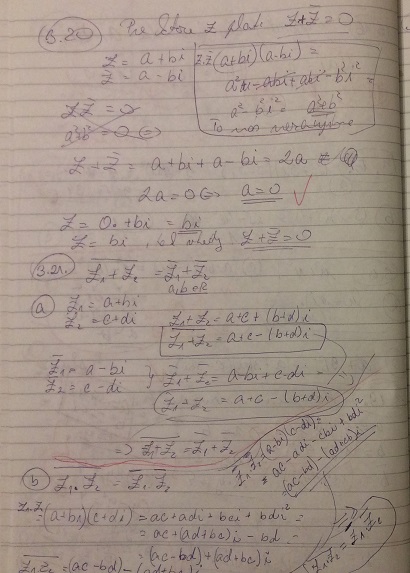 3.20 z plati z + z̄ = 0
z = a + bi
z̄ = a - bi
z·z̄ (a+bi)(a-bi) =
a² - abi + abi - b²i² =
a² - b²i² = a² + b²
To nas
z z̄ = 0
a² + b² = 0 <=>
z + z̄ = a + bi + a - bi = 2a
2a = 0 <=> a = 0 ✓
z = 0 + bi = bi
z = bi, z + z̄ = 0
3.21. \overline{z₁ + z₂} = z̄₁ + z̄₂
a,b ∈ R
a z₁ = a + bi
z₂ = c + di
z₁ + z₂ = a + c + (b+d)i
\overline{z₁ + z₂} = a + c - (b+d)i
z̄₁ = a - bi
z̄₂ = c - di
} z̄₁ + z̄₂ = a - bi + c - di =
z̄₁ + z̄₂ = a + c - (b+d)i
=> \overline{z₁ + z₂} = z̄₁ + z̄₂
z̄₁·z̄₂ = (a-bi)(c-di) =
= ac - adi - cbi + bdi²
= (ac-bd) - (ad+cb)i
b \overline{z₁·z₂} = z̄₁·z̄₂
z₁·z₂ = (a+bi)(c+di) = ac + adi + bci + bdi² =
= ac + (ad+bc)i - bd =
= (ac-bd) + (ad+bc)i
=> \overline{z₁·z₂} = z̄₁·z̄₂
\overline{z₁·z₂} = (ac-bd) - (ad+bc)i